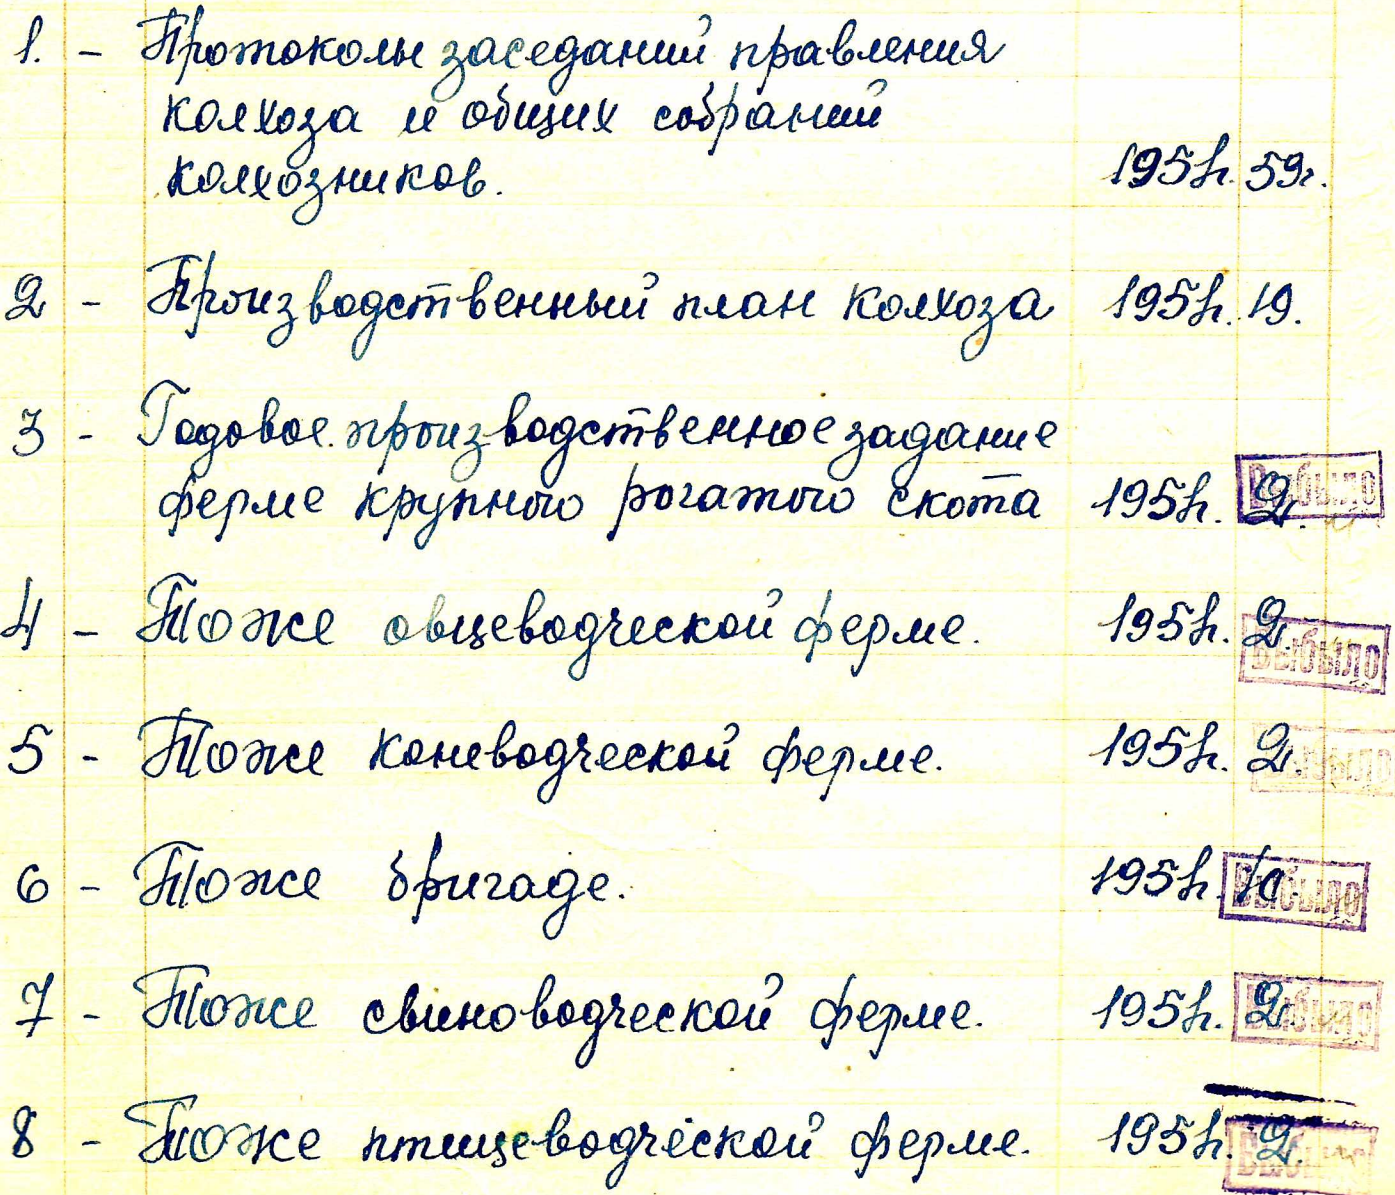 1. - Протоколы заседаний правления
колхоза и общих собраний
колхозников. 1951г. 59г.
2 - Производственный план колхоза 1951г. 19.
3 - Годовое производственное задание
ферме крупного рогатого скота 1951г. 2. Выбыло
4 - Тоже овцеводческой ферме. 1951г. 2. Выбыло
5 - Тоже коневодческой ферме. 1951г. 2. Выбыло
6 - Тоже бригаде. 1951г. 10 Выбыло
7 - Тоже свиноводческой ферме. 1951г. 2. Выбыло
8 - Тоже птицеводческой ферме. 1951г. 2. Выбыло